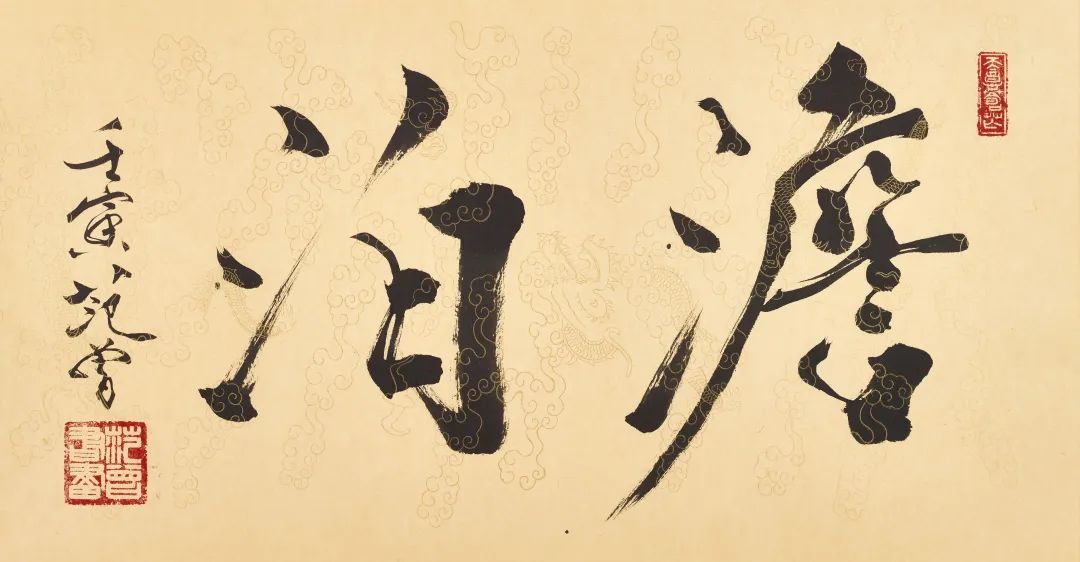 澹泊
壬寅 范曾
范曾書畫